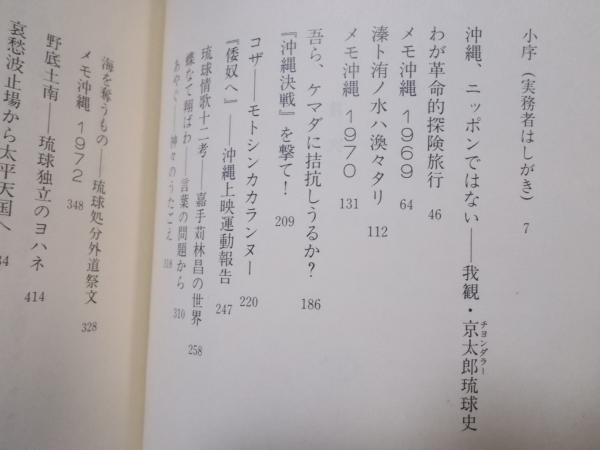 小序（実務者はしがき） 7
沖縄、ニッポンではない――我観・京太郎琉球史
チョンダラー
わが革命的探険旅行 46
メモ沖縄 1969 64
溱ト洧ノ水ハ渙々タリ 112
メモ沖縄 1970 131
吾ら、ケマダに拮抗しうるか？ 186
『沖縄決戦』を撃て！ 209
コザ――モトシンカカランヌー 220
『倭奴へ』――沖縄上映運動報告 247
琉球情歌十二考――嘉手苅林昌の世界 258
蝶なて翔ばわ――言葉の問題から 310
神々のうたごえ 318
海を奪うもの――琉球処分外道祭文 328
メモ沖縄 1972 348
野底土南――琉球独立のヨハネ 414
哀愁波止場から太平天国へ